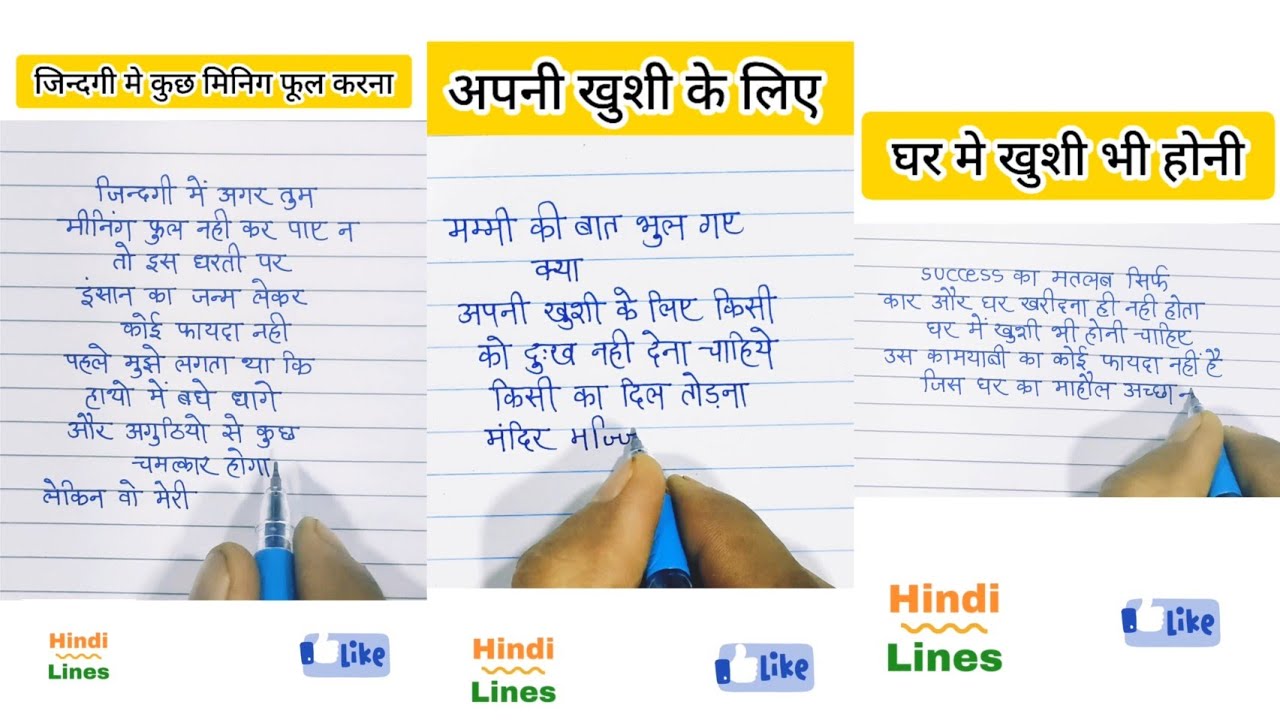 जिन्दगी मे कुछ मिनिग फूल करना
जिन्दगी में अगर तुम
मीनिंग फुल नही कर पाए न
तो इस धरती पर
इंसान का जन्म लेकर
कोई फायदा नही
पहले मुझे लगता था कि
हाथो में बधे धागे
और अगुठियो से कुछ
चमत्कार होगा
लेकिन वो मेरी
Hindi
Lines
Like
अपनी खुशी के लिए
मम्मी की बात भुल गए
क्या
अपनी खुशी के लिए किसी
को दुःख नही देना चाहिये
किसी का दिल तोड़ना
मंदिर
Hindi
Lines
Like
घर मे खुशी भी होनी
success का मतलब सिर्फ
कार और घर खरीदना ही नही होता
घर में खुशी भी होनी चाहिए
उस कामयाबी का कोई फायदा नहीं है
जिस घर का माहौल अच्छा न
Hindi
Lines
Like